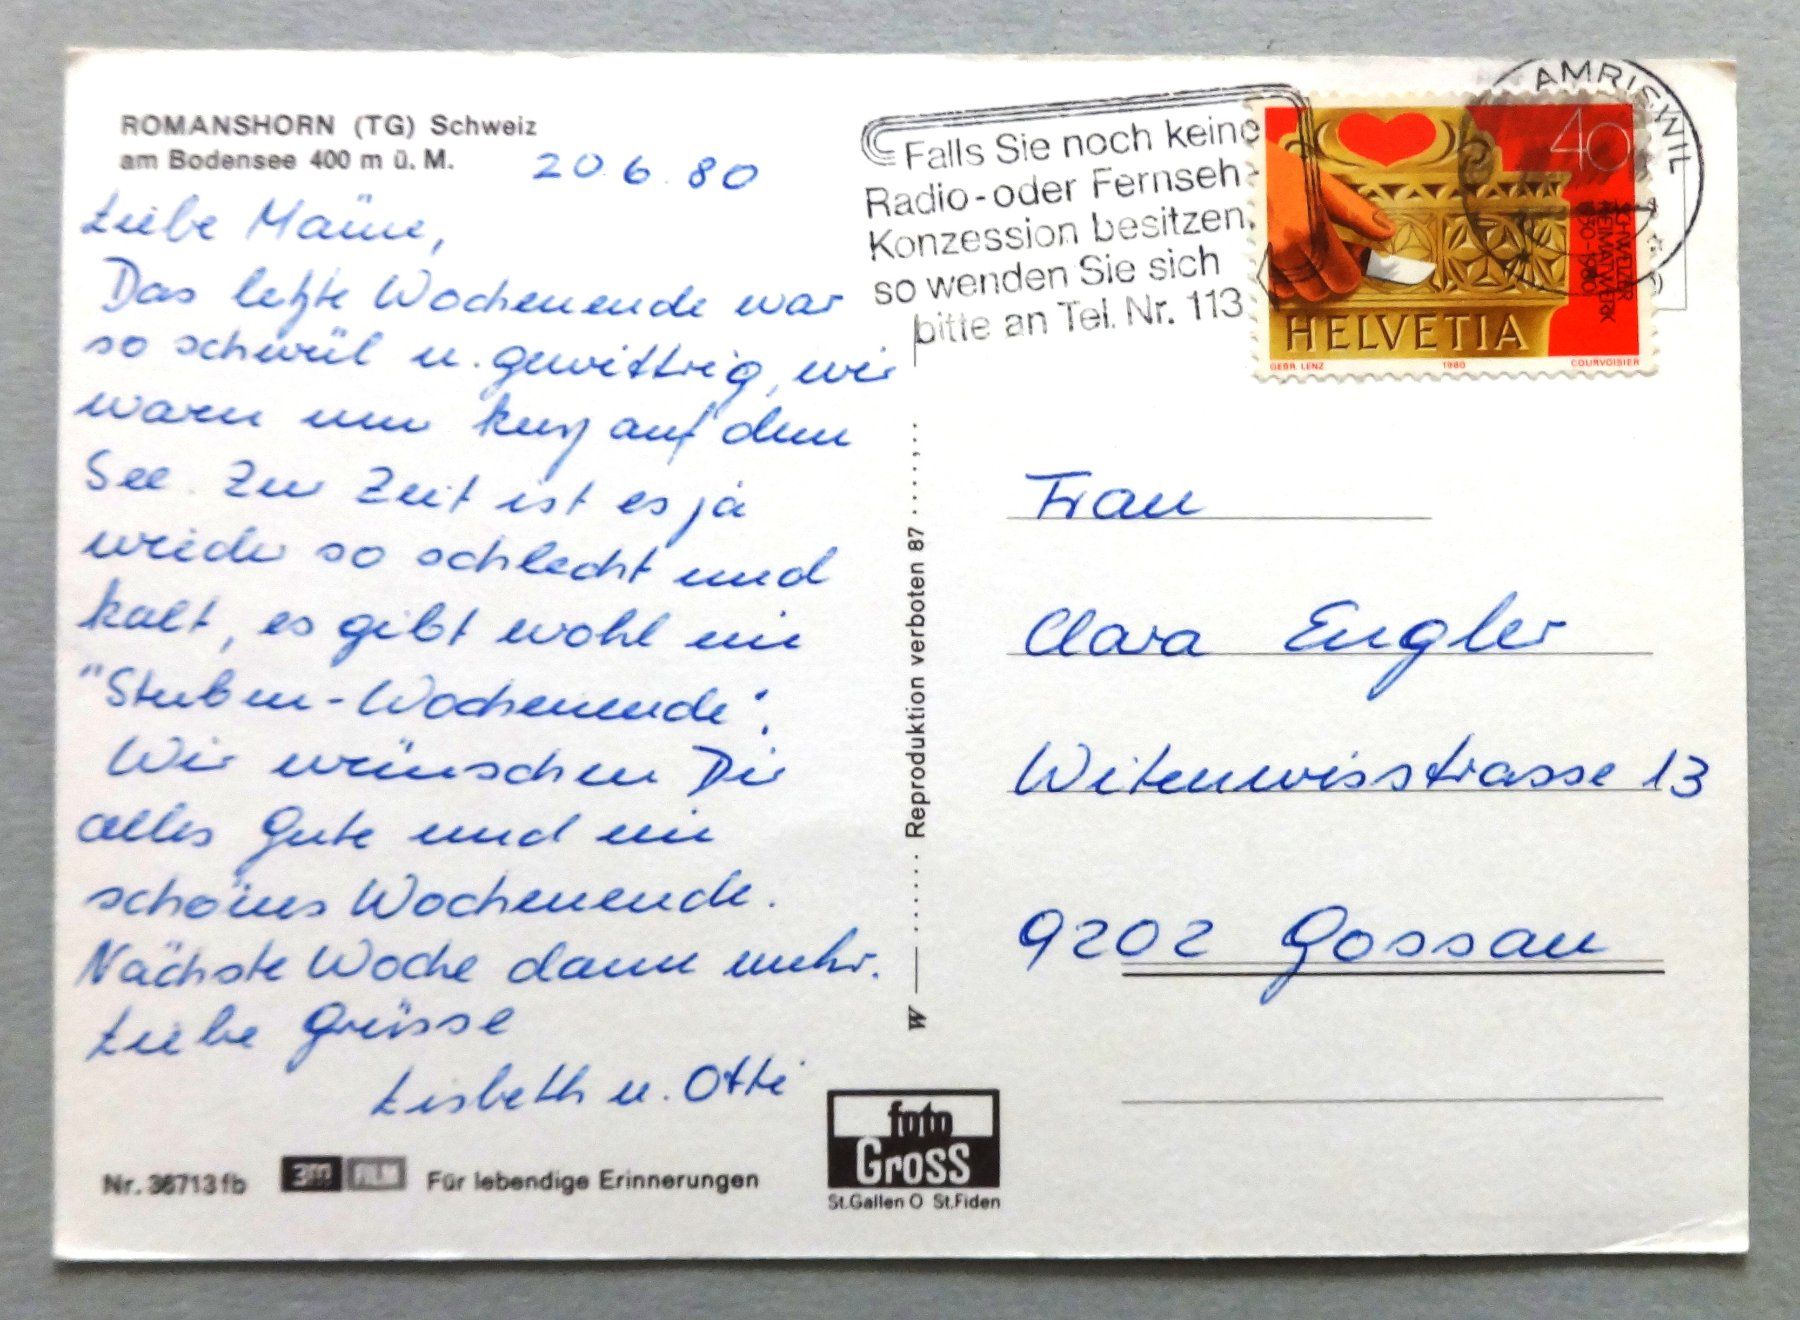 ROMANSHORN (TG) Schweiz
am Bodensee 400 m ü. M.
20.6.80
Liebe
Das letzte Wochenende war
so schwül u. gewittrig, wir
waren nur kurz auf dem
See. Zur Zeit ist es ja
wieder so schlecht und
kalt, es gibt wohl ein
"Stuben-Wochenende".
Wir wünschen Dir
alles Gute und ein
schönes Wochenende.
Nächste Woche dann mehr.
Liebe Grüsse
Lisbeth u. Otti
Nr. 36713fb
3M FILM
Für lebendige Erinnerungen
foto
Gross
St.Gallen O St.Fiden
W
Reproduktion verboten 87
Falls Sie noch keine
Radio-oder Fernseh-
Konzession besitzen,
so wenden Sie sich
bitte an Tel. Nr. 113
AMRISWIL
40
SCHWEIZER
HEIMATWERK
1930-1980
HELVETIA
GEBR. LENZ
1980
COURVOISIER
Frau
Clara Engler
Witenwisstrasse 13
9202 Gossau